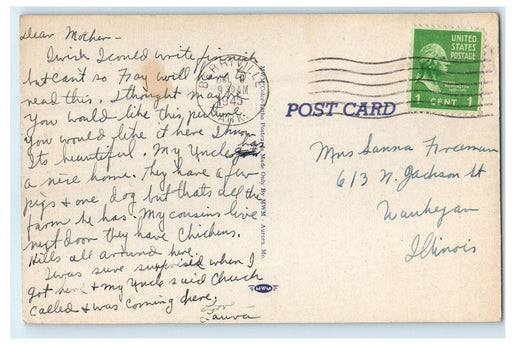 Dear Mother -
I wish I could write finnish
but cant so Fay will have to
read this. I thought maybe
you would like this picture.
You would like it here I know
Its beautiful. My Uncle has
a nice home. They have a few
pigs & one dog but thats all the
farm he has. My cousins live
next door they have Chickens.
Hills all around here.
I was sure surprised when I
got here & my Uncle said Chuck
called & was coming here.
Love
Laura
1945
ARK.
POST CARD
Made Only By MWM - Aurora, Mo.
MWM
UNITED
STATES
POSTAGE
WASHINGTON
1 CENT 1
Mrs Sanna Freeman
613 N. Jackson St
Waukegan
Illinois